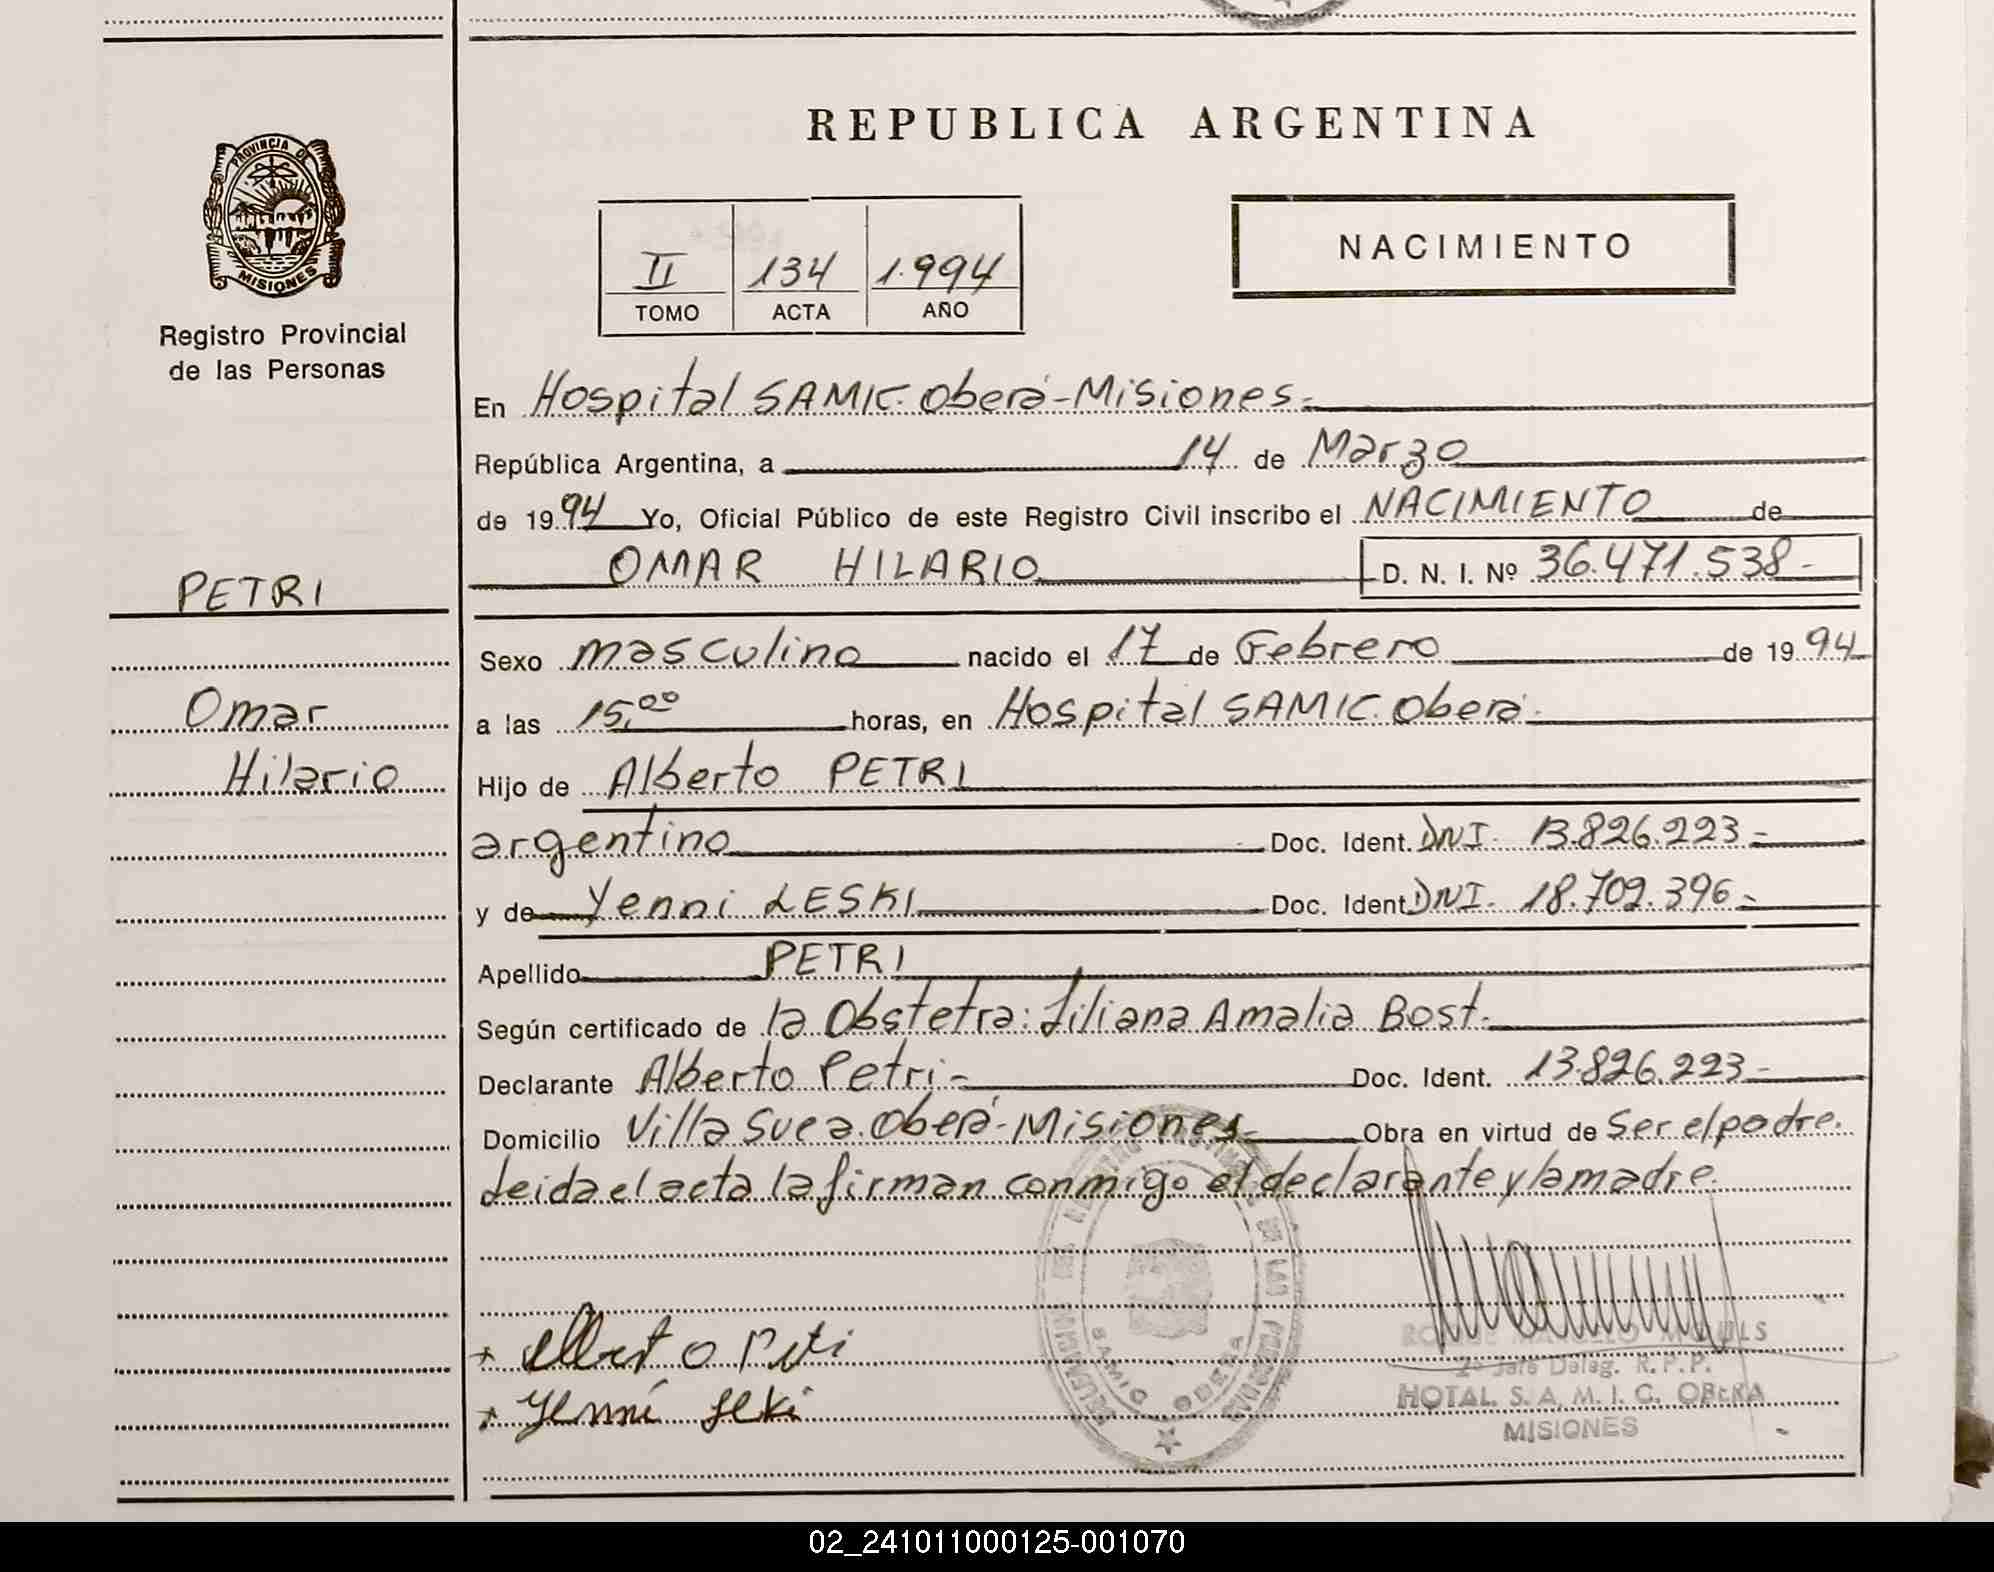 REPUBLICA ARGENTINA
PROVINCIA DE
MISIONES
Registro Provincial
de las Personas
II 134 1.994
TOMO ACTA AÑO
NACIMIENTO
En Hospital SAMIC. Oberá-Misiones.
República Argentina, a 14 de Marzo
de 1994 Yo, Oficial Público de este Registro Civil inscribo el NACIMIENTO de
OMAR HILARIO D. N. I. Nº 36.471.538-
PETRI
Sexo masculino nacido el 17 de Febrero de 1994
Omar
a las 15,00 horas, en Hospital SAMIC. Oberá.
Hilario
Hijo de Alberto PETRI
argentino Doc. Ident. DNI. 13.826.223-
y de Yenni LESKI Doc. Ident. DNI. 18.702.396-
Apellido PETRI
Según certificado de la Obstetra: Liliana Amalia Bost.
Declarante Alberto Petri- Doc. Ident. 13.826.223-
Domicilio Villa Sueca. Oberá-Misiones- Obra en virtud de Ser el padre.
Leida el acta la firman conmigo el declarante y la madre.
+ Alberto Petri
+ Yenni Leki
2º Jefe Deleg. R.P.P.
HOTAL. S. A. M. I. C. OBERA
MISIONES
SAMIC OBERA
02_241011000125-001070